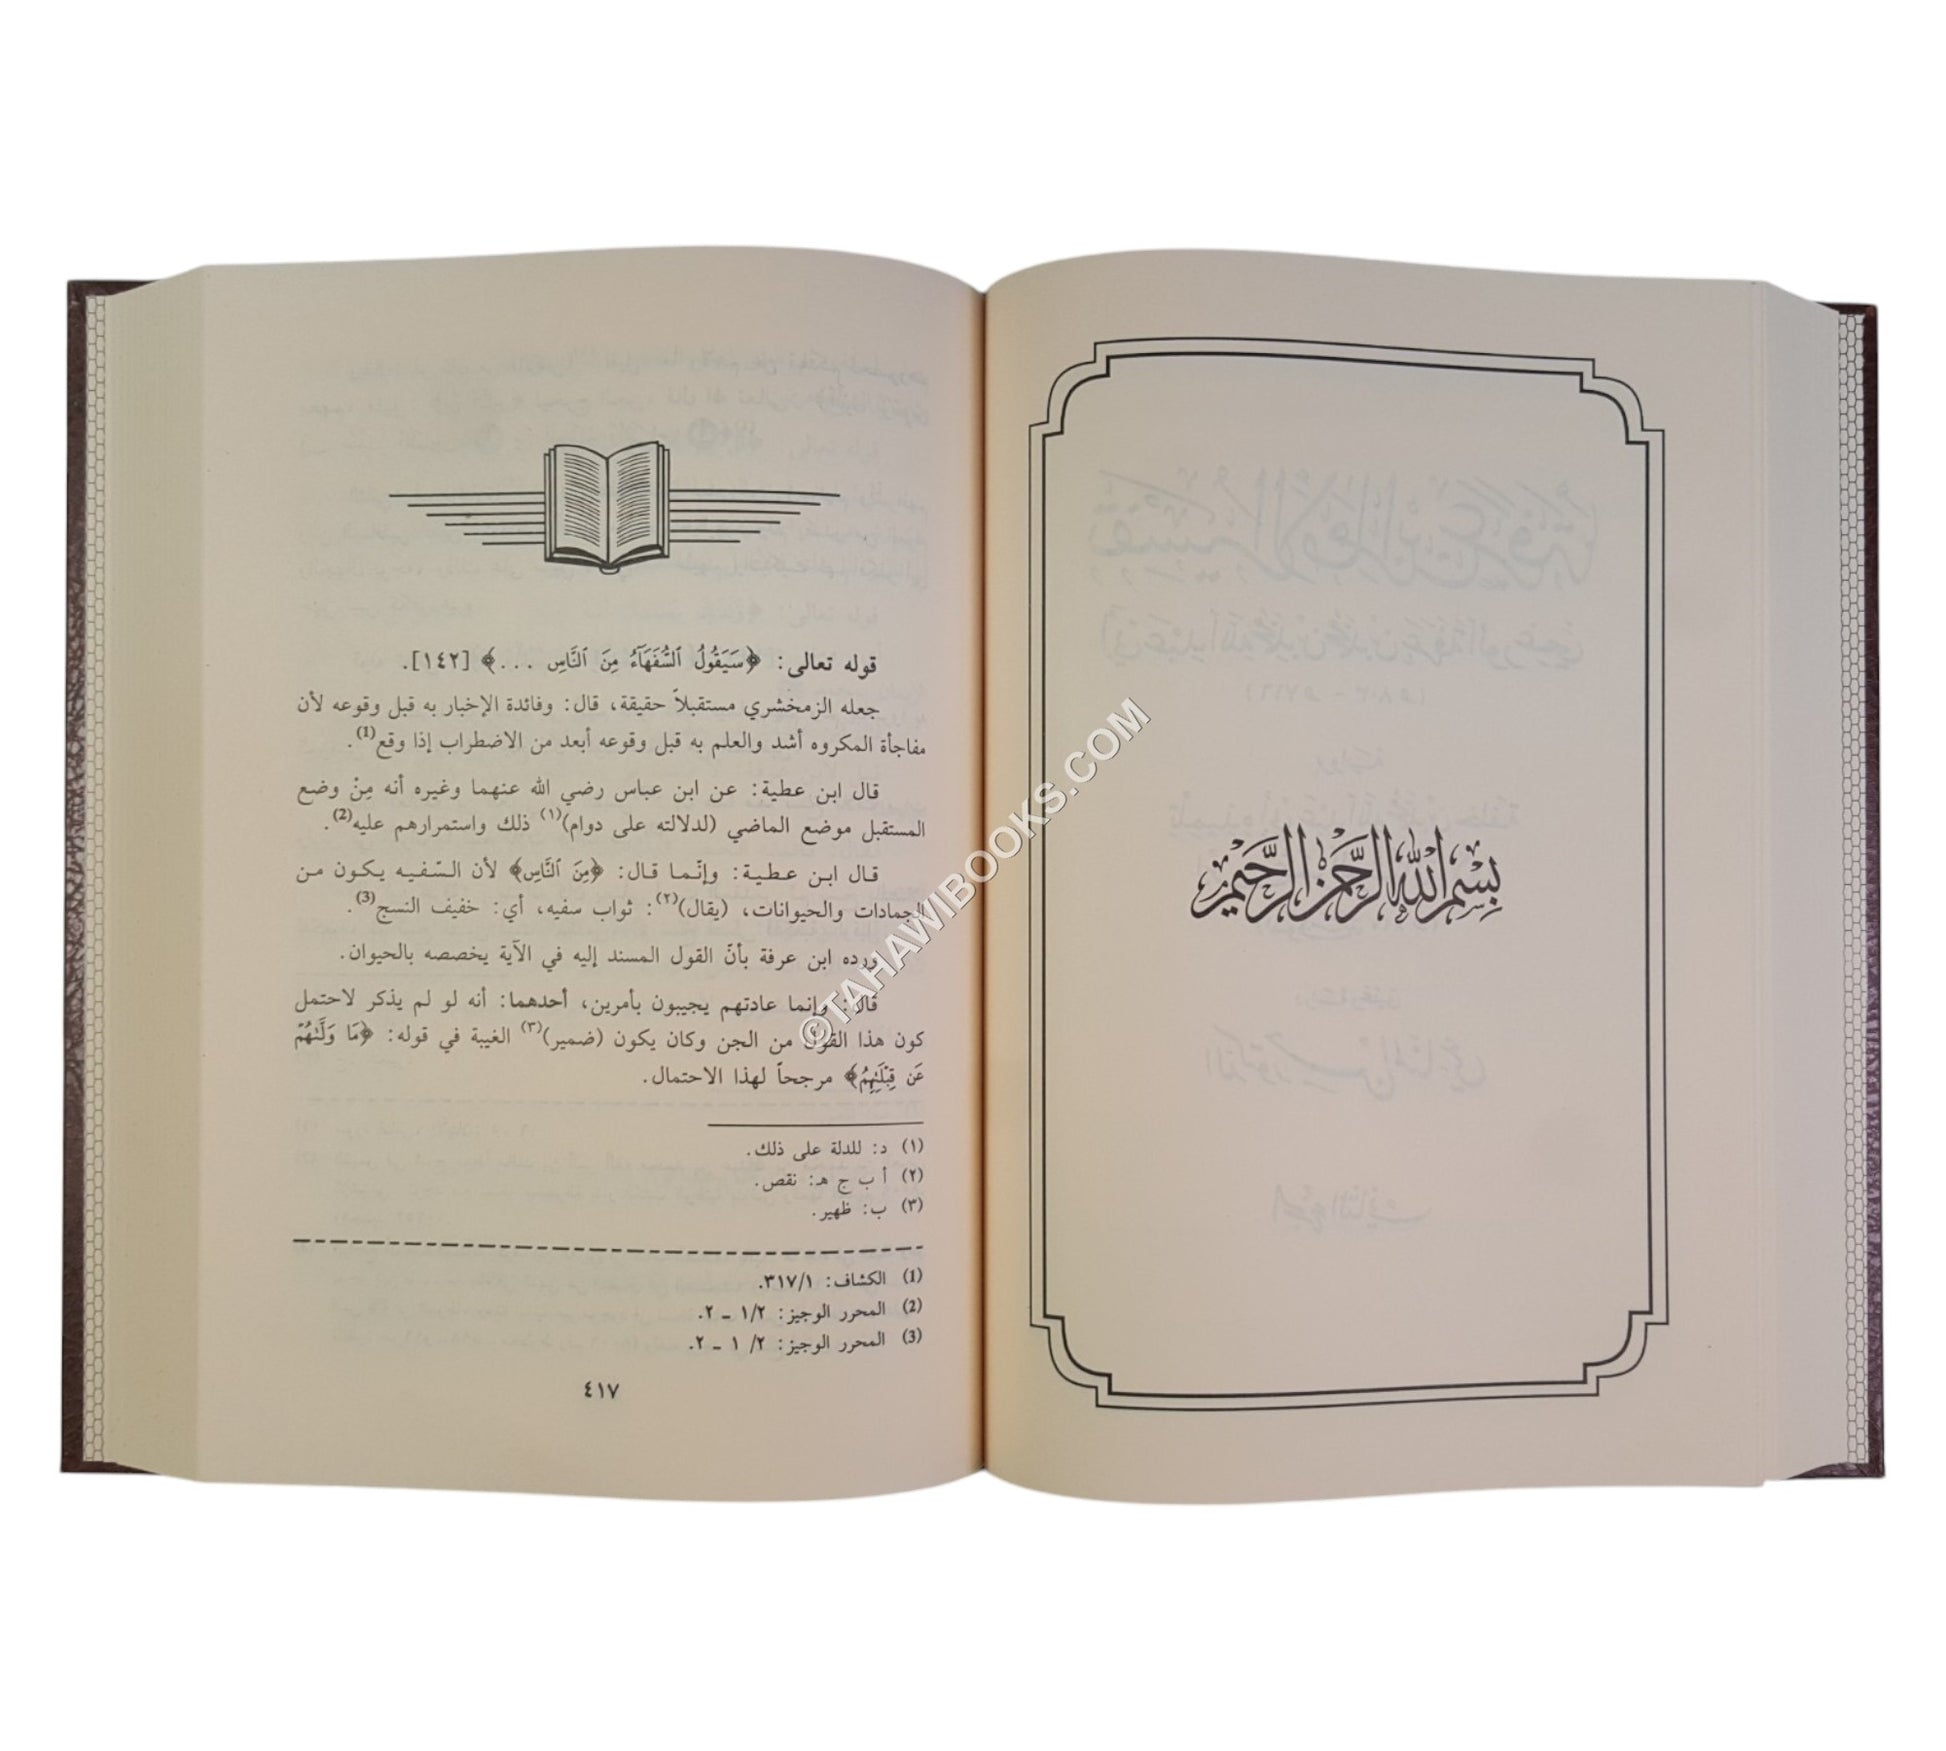 بِسْمِ اللَّهِ الرَّحْمَنِ الرَّحِيمِ
قوله تعالى: ﴿سَيَقُولُ ٱلسُّفَهَآءُ مِنَ ٱلنَّاسِ ...﴾ [١٤٢].
جعله الزمخشري مستقبلاً حقيقة، قال: وفائدة الإخبار به قبل وقوعه لأن
مفاجأة المكروه أشد والعلم به قبل وقوعه أبعد من الاضطراب إذا وقع(1).
قال ابن عطية: عن ابن عباس رضي الله عنهما وغيره أنه مِنْ وضع
المستقبل موضع الماضي (لدلالته على دوام)(١) ذلك واستمرارهم عليه(2).
قال ابن عطية: وإنّما قال: ﴿مِنَ ٱلنَّاسِ﴾ لأن السّفيه يكون من
الجمادات والحيوانات، (يقال)(٢): ثواب سفيه، أي: خفيف النسج(3).
ورده ابن عرفة بأنّ القول المسند إليه في الآية يخصصه بالحيوان.
قال: وإنما عادتهم يجيبون بأمرين، أحدهما: أنه لو لم يذكر لاحتمل
كون هذا القول من الجن وكان يكون (ضمير)(٣) الغيبة في قوله: ﴿مَا وَلَّىٰهُمْ
عَن قِبْلَتِهِمُ﴾ مرجحاً لهذا الاحتمال.
(١) د: للدلة على ذلك.
(٢) أ ب ج هـ: نقص.
(٣) ب: ظهير.
(1) الكشاف: ٣١٧/١.
(2) المحرر الوجيز: ١/٢ ـ ٢.
(3) المحرر الوجيز: ٢/ ١ ـ ٢.
٤١٧
©TAHAWIBOOKS.COM